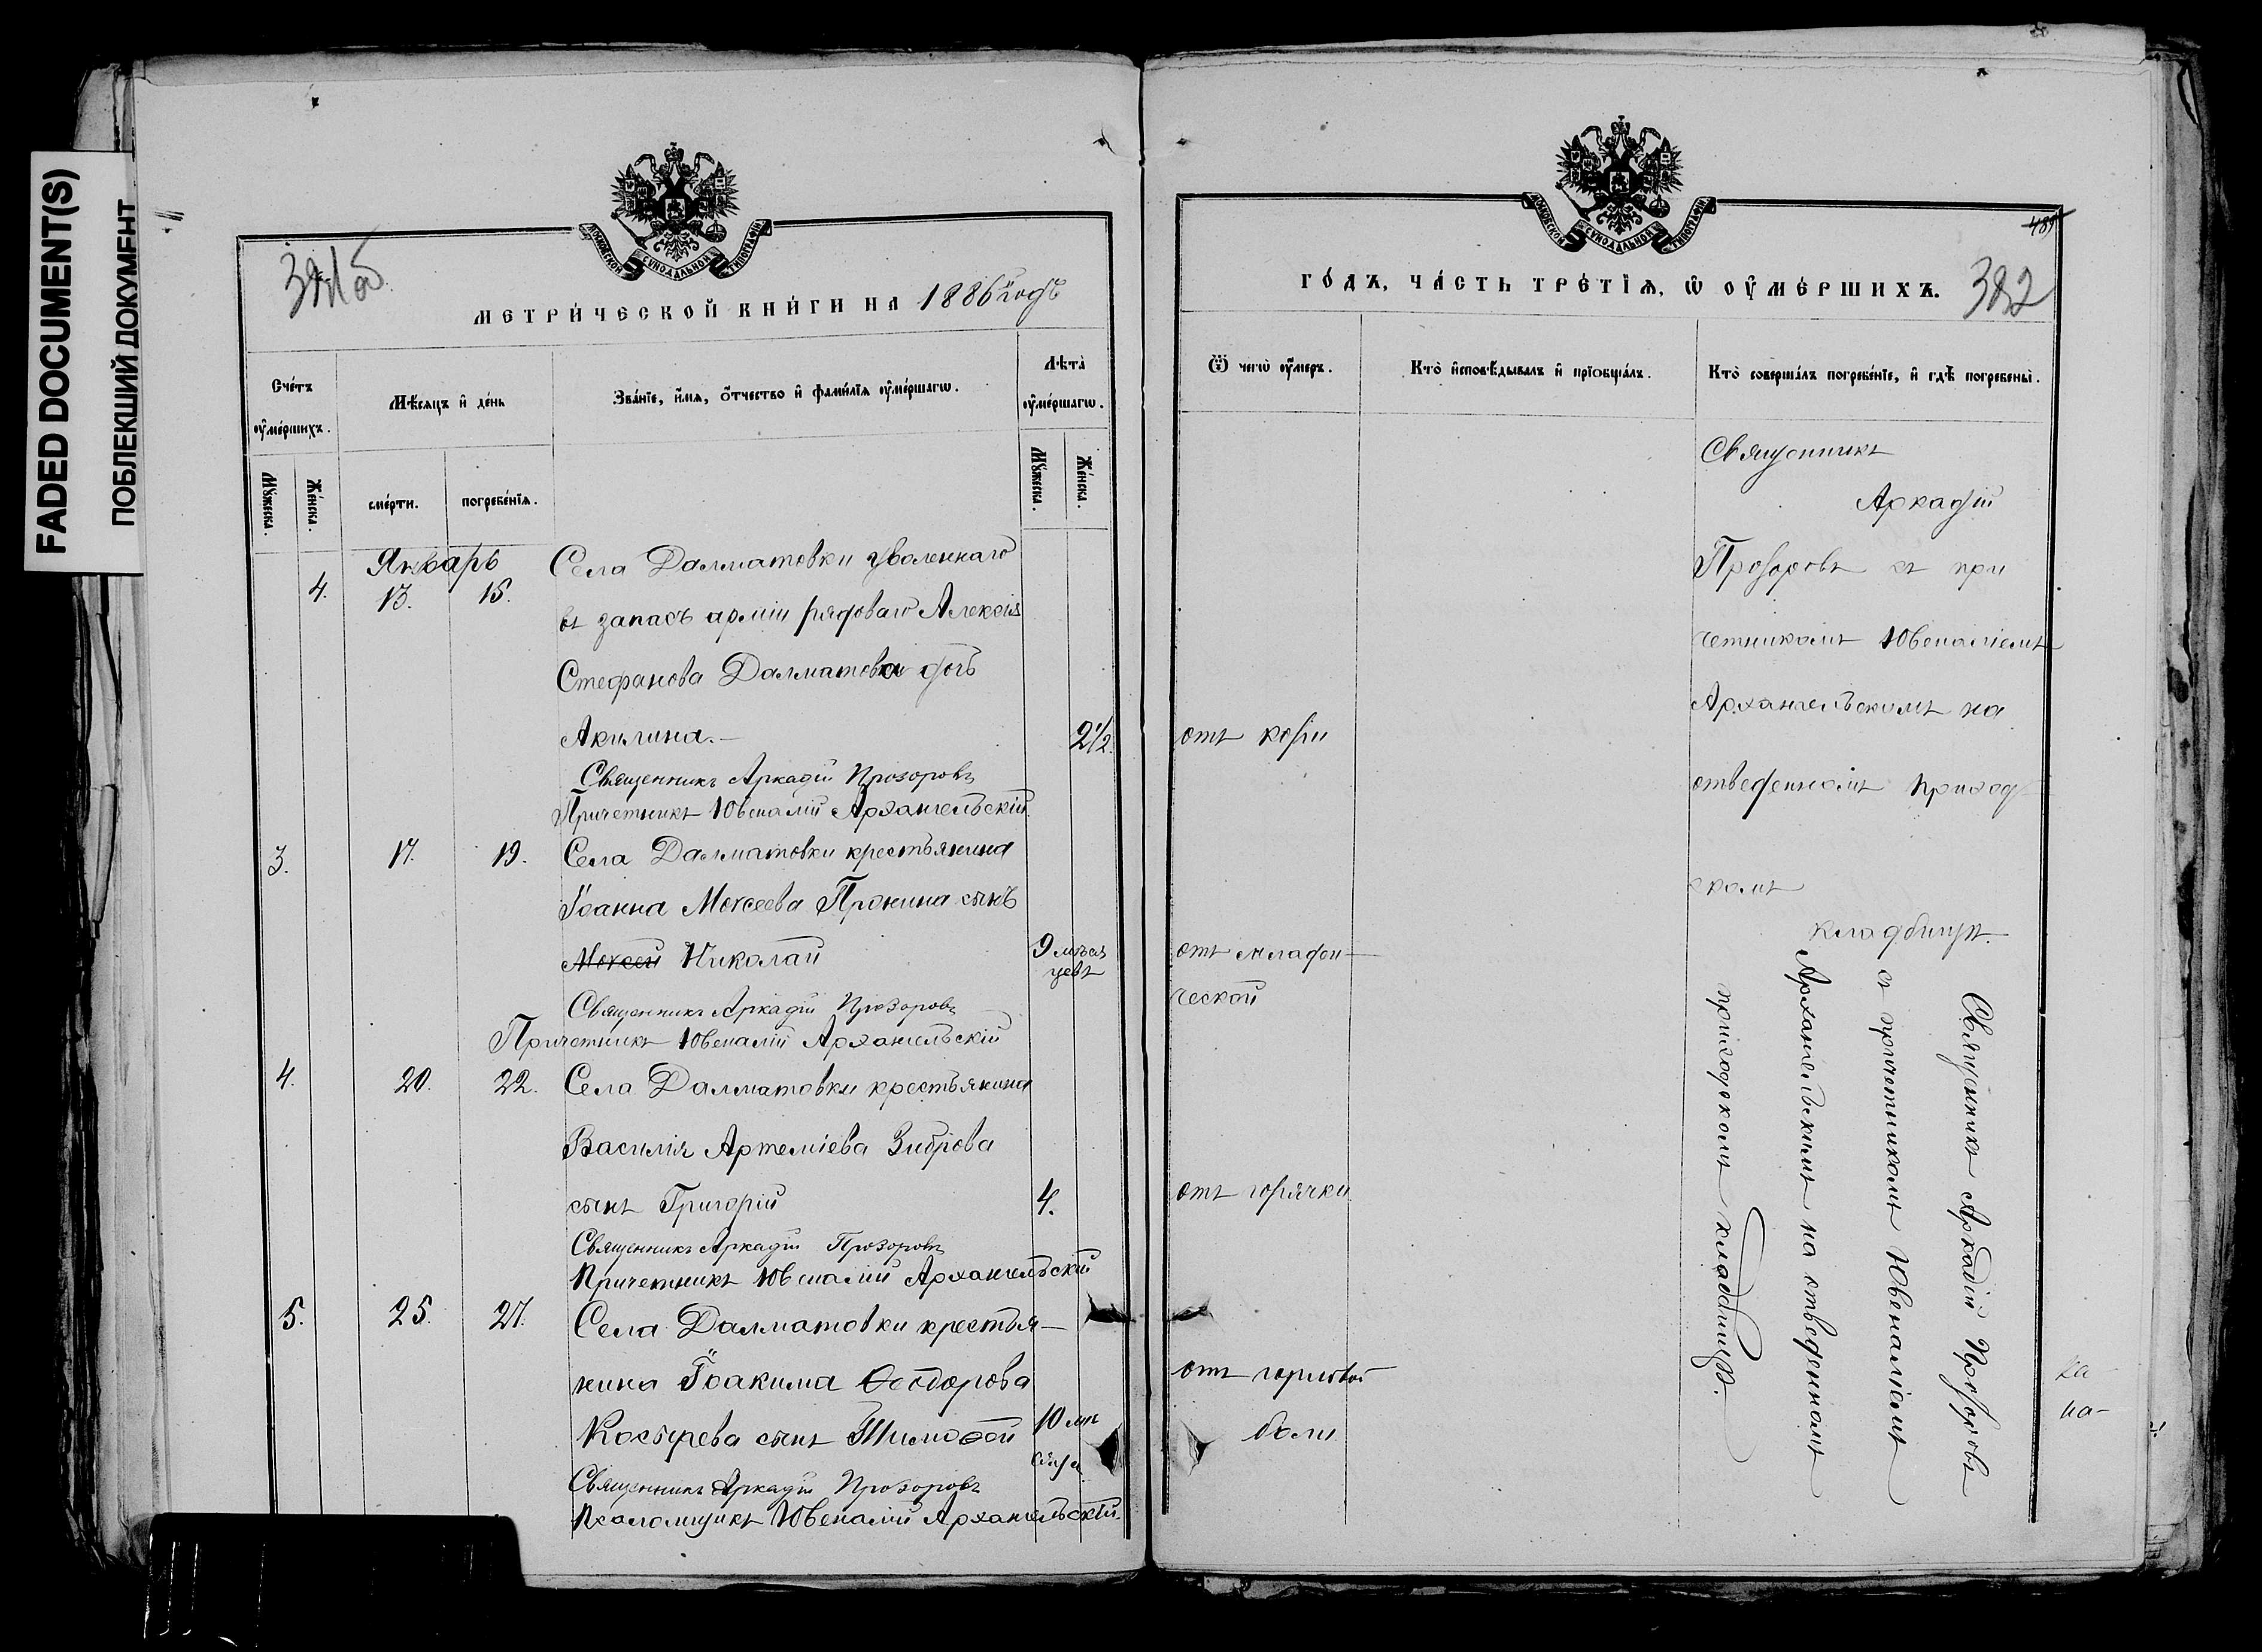 FADED DOCUMENT(S)
ПОБЛЕКШИЙ ДОКУМЕНТ
МОСКОВСКОЙ СѴНОДАЛЬНОЙ ТИПОГРАФІИ
МЕТРИ́ЧЕСКОЙ КНИ́ГИ НА 1886 годъ
Сче́тъ оу҆ме́ршихъ.
Мѣ́сяцъ и҆ де́нь
Зва́нїе, и҆́мѧ, ѻ҆́тчество и҆ фами́лїѧ оу҆ме́ршагѡ.
Лѣта̀ оу҆ме́ршагѡ.
Мꙋ́жеска.
Же́нска.
сме́рти.
погребе́нїѧ.
Мꙋ́жеска.
Же́нска.
Январь
4. 13. 15.
Села Далматовки уволеннаго
въ запасъ арміи рядоваго Алексія
Стефанова Далматова дочь
Акилина.— 2½.
Священникъ Аркадій Прозоровъ
Причетникъ Ювеналій Архангельскій.
3. 17. 19. Села Далматовки крестьянина
Іоанна Моисеева Пронина сынъ
Моисей Николай 9 мѣся
цевъ
Священникъ Аркадій Прозоровъ
Причетникъ Ювеналій Архангельскій
4. 20. 22. Села Далматовки крестьянина
Василія Артеміева Зиброва
сынъ Григорій 4.
Священникъ Аркадій Прозоровъ
Причетникъ Ювеналій Архангельскій
5. 25. 27. Села Далматовки крестья—
нина Іоакима Ѳеодорова
Косырева сынъ Тимоѳей 10 мѣ
Священникъ Аркадій Прозоровъ
Псаломщикъ Ювеналій Архангельскій.
МОСКОВСКОЙ СѴНОДАЛЬНОЙ ТИПОГРАФІИ
ГО́ДЪ, ЧА́СТЬ ТРЕ́ТЇѦ, Ѡ҆ ОУ҆МЕ́РШИХЪ.
382
Ѿ чегѡ̀ оу҆́меръ.
Кто̀ и҆сповѣ́дывалъ и҆ прїѻбща́лъ.
Кто̀ соверша́лъ погребе́нїе, и҆ гдѣ̀ погребены̀.
отъ кори
отъ младен—
ческой
отъ горячки
отъ горловой
боли
Священникъ
Аркадій
Прозоровъ съ при
четникомъ Ювеналіемъ
Архангельскимъ на
отведенномъ приход
скомъ
кладбищѣ.
Священникъ Аркадій Прозоровъ
съ причетникомъ Ювеналіемъ
Архангельскимъ на отведенномъ
приходскомъ кладбищѣ.
ка—
на—